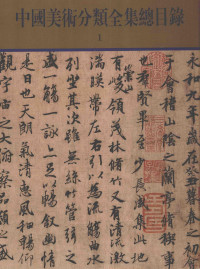 中國美術分類全集總目錄
1
永和九年歲在癸丑暮春之初會
于會稽山陰之蘭亭脩稧事
也群賢畢至少長咸集此地
有崇山峻領茂林脩竹又有清流激
湍暎帶左右引以為流觴曲水
列坐其次雖無絲竹管弦之
盛一觴一詠亦足以暢敘幽情
是日也天朗氣清惠風和暢仰
觀宇宙之大俯察品類之盛